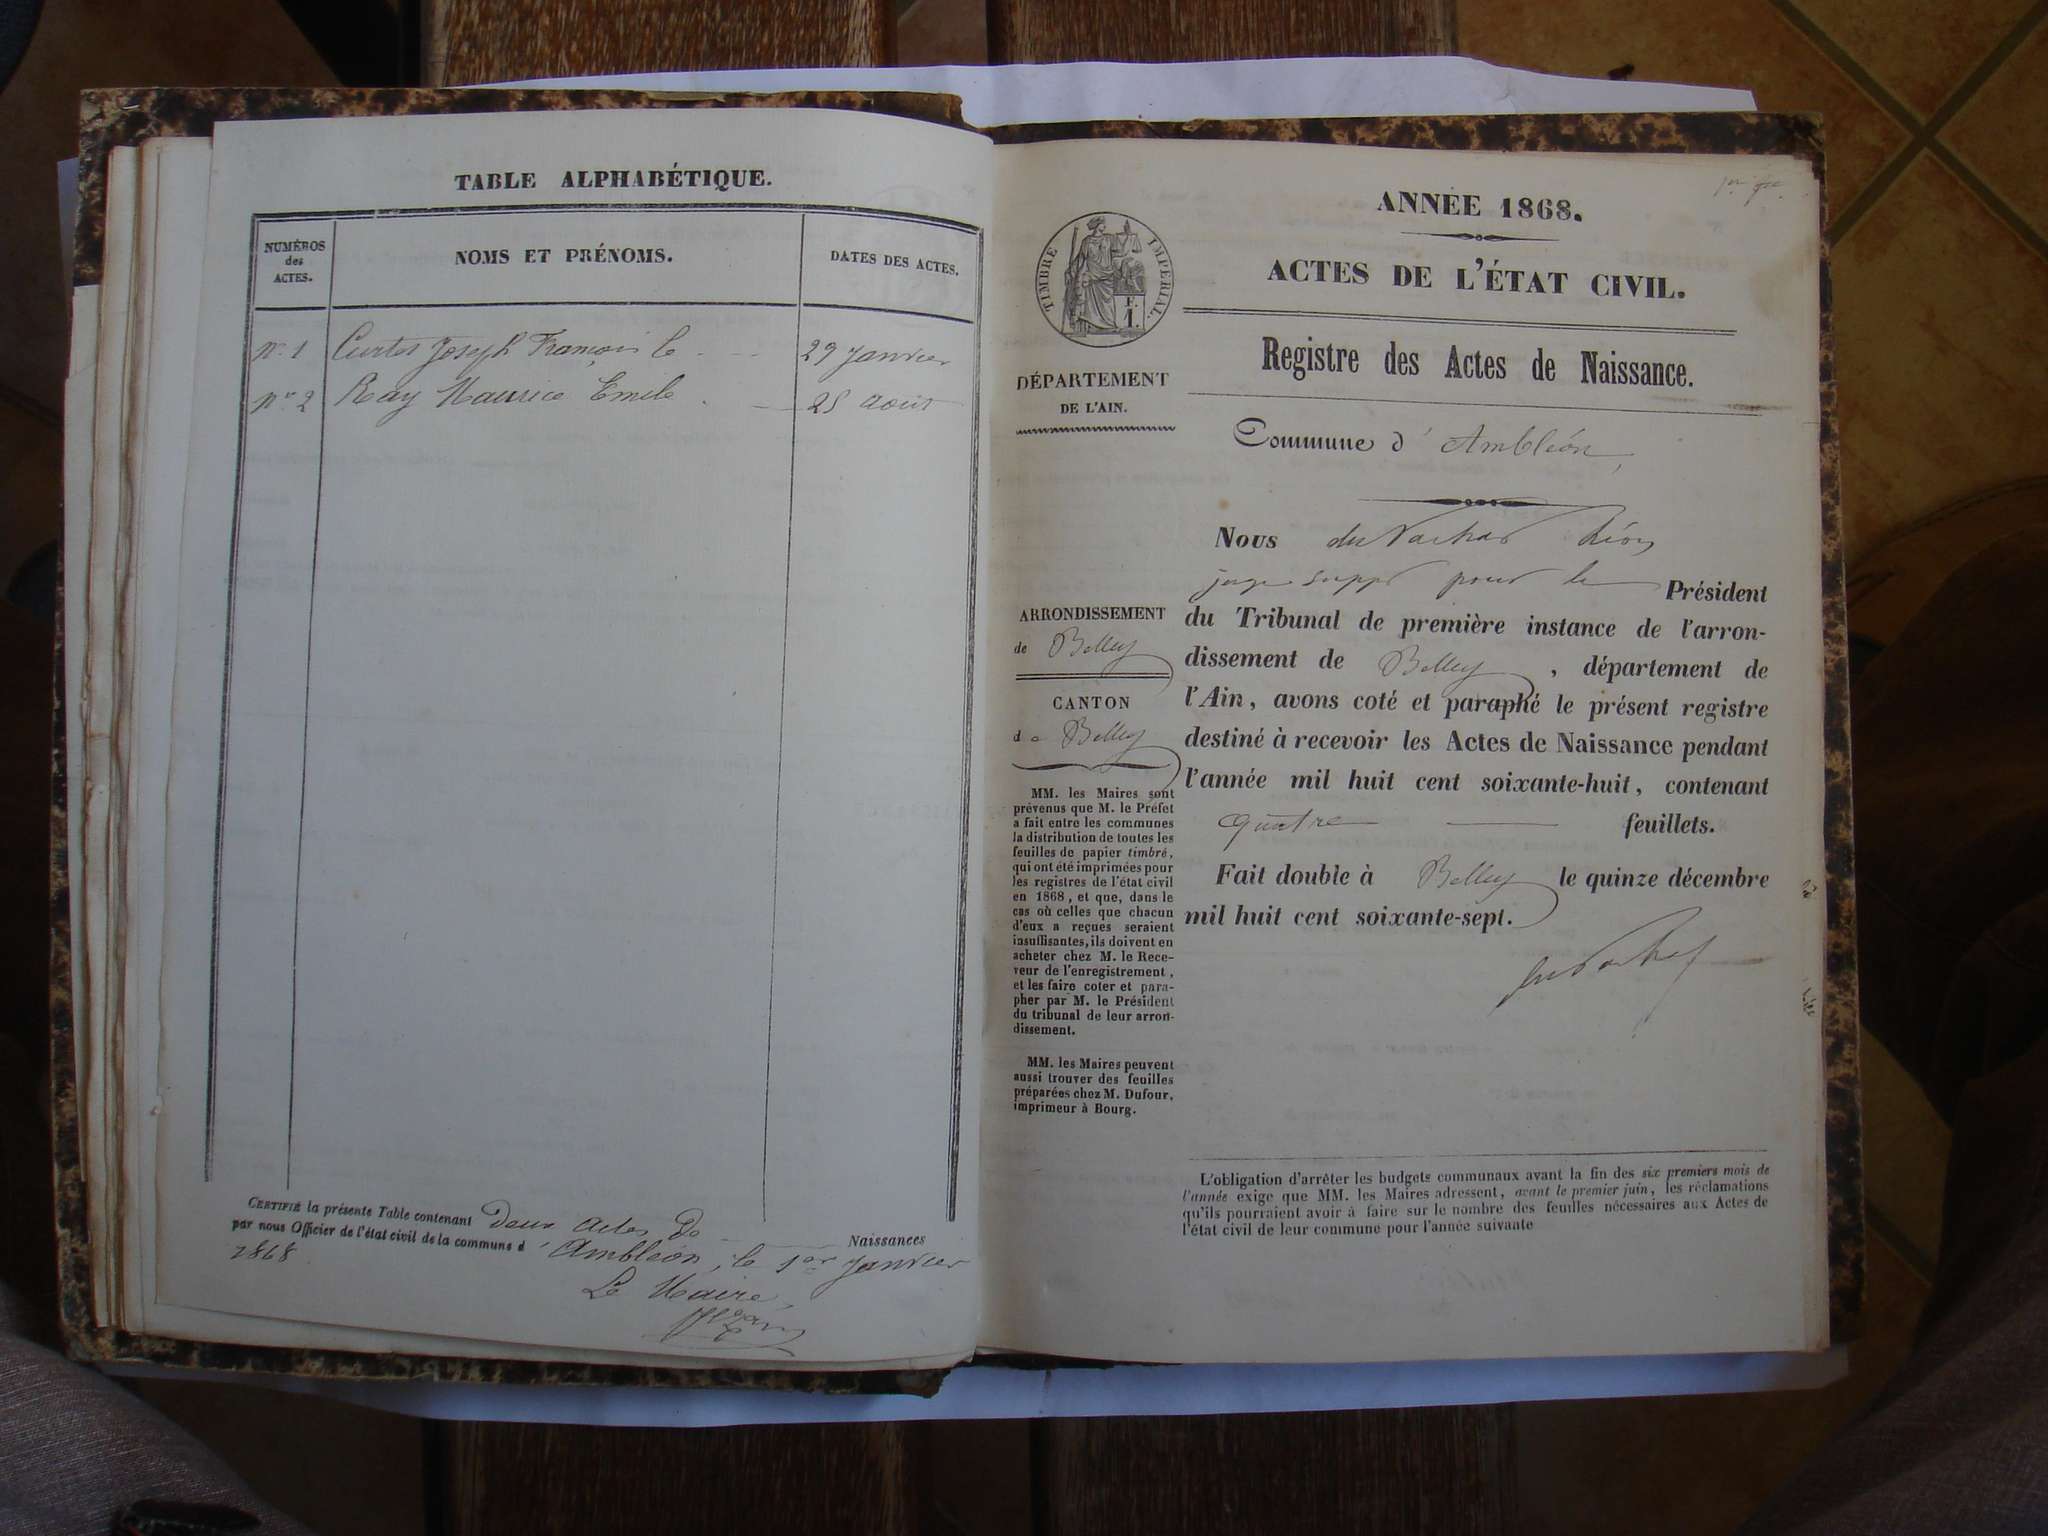 TABLE ALPHABÉTIQUE.
NUMÉROS
des
ACTES.
NOMS ET PRÉNOMS.
DATES DES ACTES.
No. 1 Curtet Joseph François le 29 Janvier
No. 2 Ray Maurice Emile 25 Août
CERTIFIÉ la présente Table contenant Deux actes De Naissances
par nous Officier de l'état civil de la commune d'Ambléon, le 1er Janvier
1868
Le Maire,
1er
ANNÉE 1868.
TIMBRE IMPÉRIAL.
ACTES DE L'ÉTAT CIVIL.
Registre des Actes de Naissance.
DÉPARTEMENT
DE L'AIN.
Commune d'Ambléon,
ARRONDISSEMENT
de Belley
CANTON
de Belley
MM. les Maires sont
prévenus que M. le Préfet
a fait entre les communes
la distribution de toutes les
feuilles de papier timbré,
qui ont été imprimées pour
les registres de l'état civil
en 1868, et que, dans le
cas où celles que chacun
d'eux a reçues seraient
insuffisantes, ils doivent en
acheter chez M. le Rece-
veur de l'enregistrement,
et les faire coter et para-
pher par M. le Président
du tribunal de leur arron-
dissement.
MM. les Maires peuvent
aussi trouver des feuilles
préparées chez M. Dufour,
imprimeur à Bourg.
Nous
juge supp pour le Président
du Tribunal de première instance de l'arron-
dissement de Belley, département de
l'Ain, avons coté et paraphé le présent registre
destiné à recevoir les Actes de Naissance pendant
l'année mil huit cent soixante-huit, contenant
quatre feuillets.
Fait double à Belley le quinze décembre
mil huit cent soixante-sept.
L'obligation d'arrêter les budgets communaux avant la fin des six premiers mois de
l'année exige que MM. les Maires adressent, avant le premier juin, les réclamations
qu'ils pourraient avoir à faire sur le nombre des feuilles nécessaires aux Actes de
l'état civil de leur commune pour l'année suivante